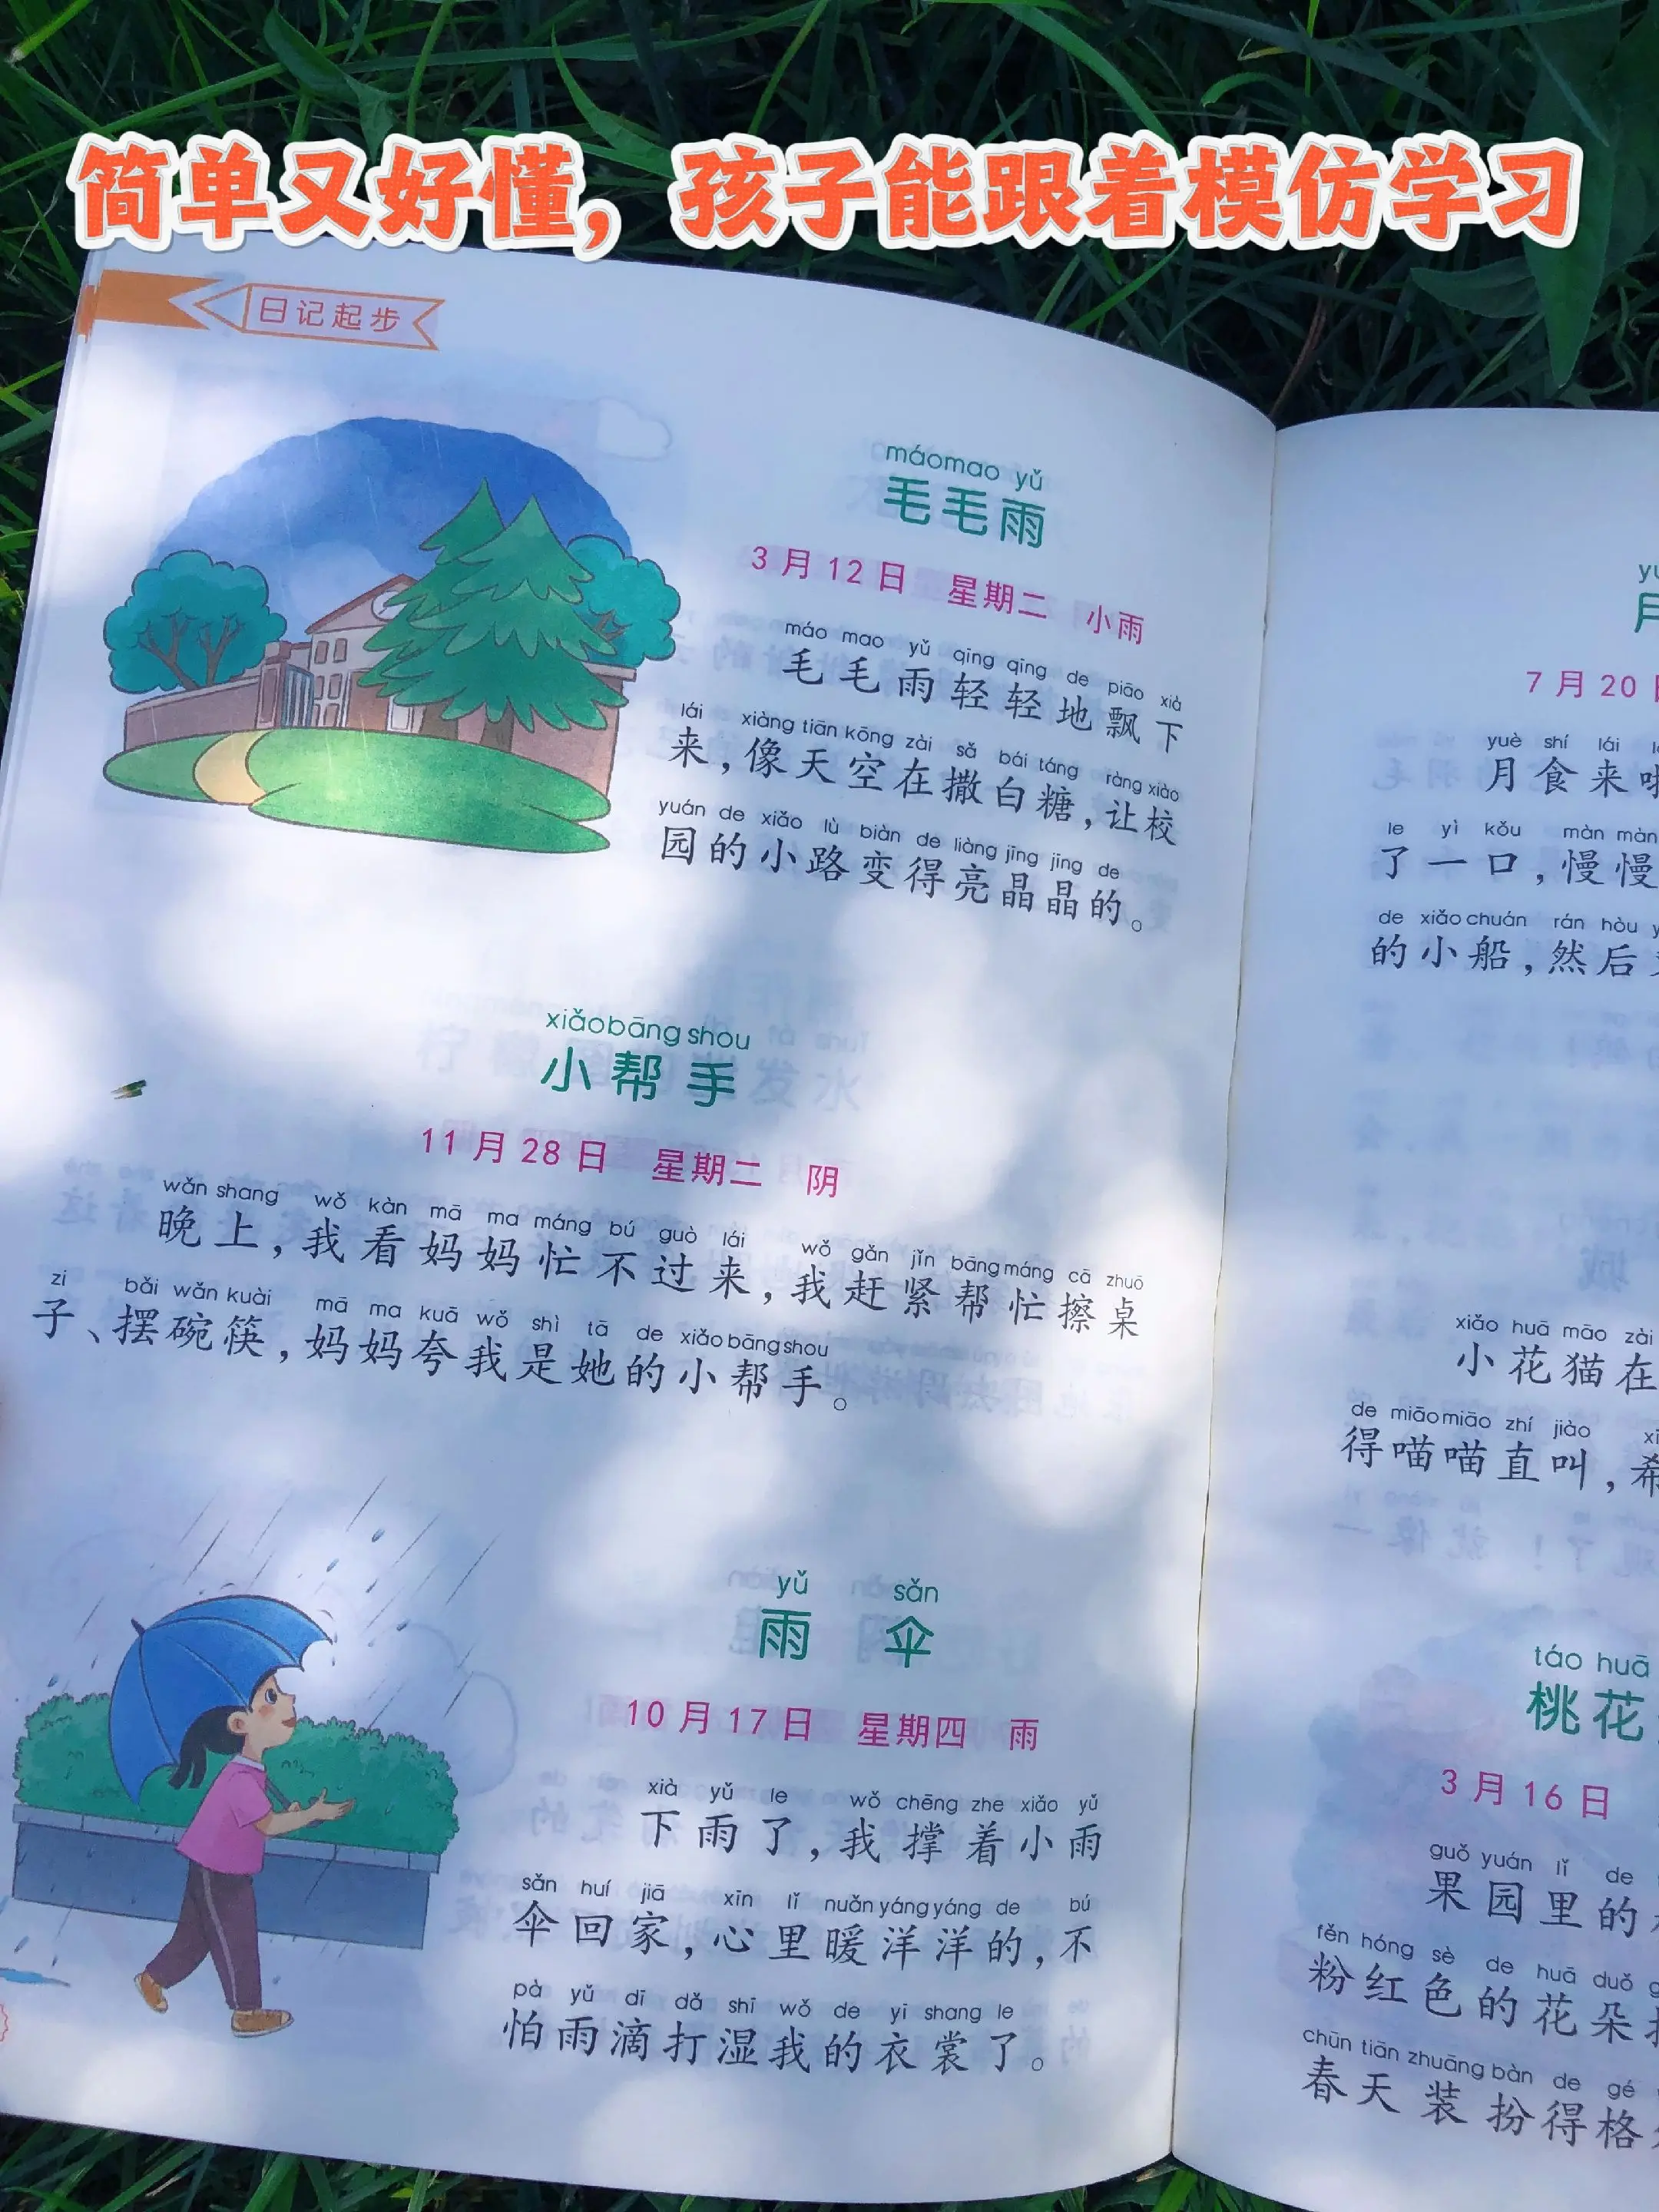 简单又好懂，孩子能跟着模仿学习
日记起步
máomao yǔ
毛毛雨
3月12日 星期二 小雨
máo mao yǔ qīng qīng de piāo xià
毛毛雨轻轻地飘下
lái xiàng tiān kōng zài sǎ bái táng ràng xiào
来，像天空在撒白糖，让校
yuán de xiǎo lù biàn de liàng jīng jīng de
园的小路变得亮晶晶的。
xiǎobāng shou
小帮手
11月28日 星期二 阴
wǎn shang wǒ kàn mā ma máng bú guò lái wǒ gǎn jǐn bāng máng cā zhuō
晚上，我看妈妈忙不过来，我赶紧帮忙擦桌
zi bǎi wǎn kuài mā ma kuā wǒ shì tā de xiǎo bāng shou
子、摆碗筷，妈妈夸我是她的小帮手。
yǔ sǎn
雨伞
10月17日 星期四 雨
xià yǔ le wǒ chēng zhe xiǎo yǔ
下雨了，我撑着小雨
sǎn huí jiā xīn lǐ nuǎn yáng yáng de bú
伞回家，心里暖洋洋的，不
pà yǔ dī dǎ shī wǒ de yī shang le
怕雨滴打湿我的衣裳了。
7月20
yuè shí lái
月食来
le yì kǒu màn màn
了一口，慢慢
de xiǎo chuán rán hòu
的小船，然后
xiǎo huā māo zài
小花猫在
de miāo miāo zhí jiào
得喵喵直叫，希
táo huā
桃花
3月16日
guǒ yuán lǐ de
果园里的
fěn hóng sè de huā duǒ
粉红色的花朵
chūn tiān zhuāng bàn de gé
春天装扮得格